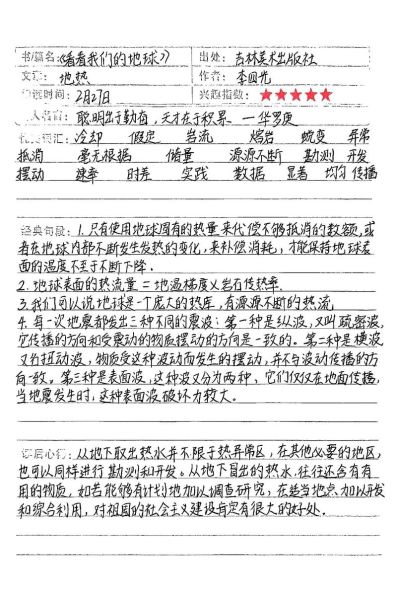 书/篇名:《看看我们的地球》 出处: 吉林美术出版社
文章: 地热 作者: 李四光
阅读时间: 2月27日 兴趣指数: ★★★★★
人名言: 聪明出于勤奋,天才在于积累 —华罗庚
词汇: 冷却 假定 岩流 熔岩 蜕变 异常
抵消 毫无根据 储量 源源不断 勘测 开发
摆动 速率 时差 实践 数据 显著 均匀 传播
经典句段: 1.只有使用地球固有的热量来代偿不够抵消的数额,或
者在地球内部不断发生发热的变化,来补偿消耗,才能保持地球表
面的温度不至于不断下降.
2.地球表面的热流量=地温梯度×岩石传热率.
3.我们可以说地球是一个庞大的热库,有源源不断的热流.
4.每一次地震都发出三种不同的震波:第一种是纵波,又叫疏密波,
它传播的方向和受震动的物质摆动的方向是一致的。第二种是横波
又称扭动波,物质受这种波动而发生的摆动,并不与波动传播的方
向一致。第三种是表面波,这种波又分为两种,它们仅仅在地面传播,
当地震发生时,这种表面波破坏力较大。
读后心得: 从地下取出热水并不限于热异常区,在其他必要的地区,
也可以同样进行勘测和开发。从地下冒出的热水,往往还含有有
用的物质,如若能够有计划地加以调查研究,在适当地点加以开发
和综合利用,对祖国的社会主义建设肯定有很大的好处.